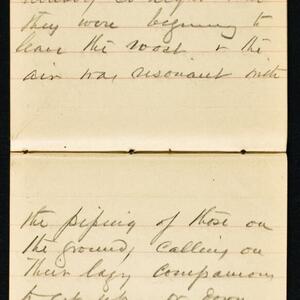 they were beginning to
leave the roost & the
air was resonant with
the piping of those on
the ground, calling on
their lazy companions
to get up or down